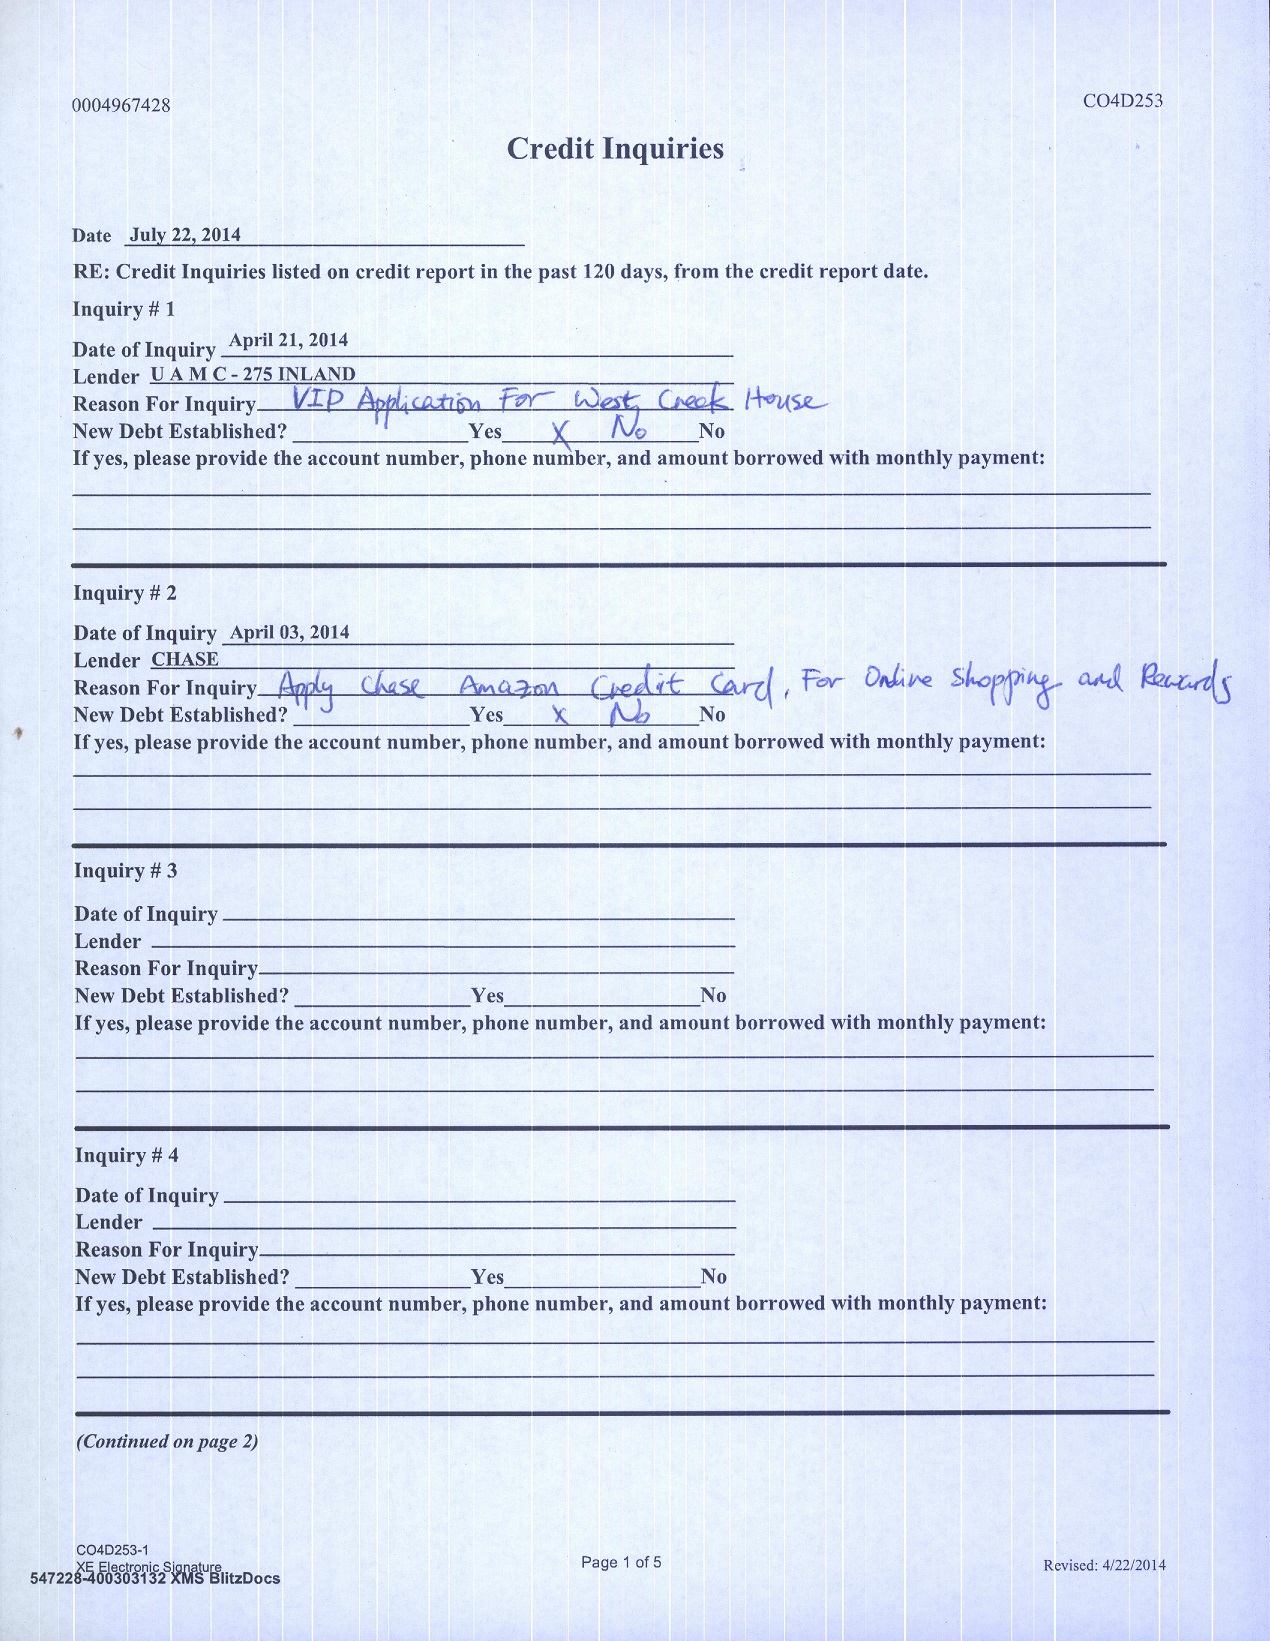 0004967428 CO4D253
Credit Inquiries
Date July 22, 2014
RE: Credit Inquiries listed on credit report in the past 120 days, from the credit report date.
Inquiry # 1
Date of Inquiry April 21, 2014
Lender U A M C - 275 INLAND
Reason For Inquiry VIP Application For West Creek House
New Debt Established? Yes X No No
If yes, please provide the account number, phone number, and amount borrowed with monthly payment:
Inquiry # 2
Date of Inquiry April 03, 2014
Lender CHASE
Reason For Inquiry Apply Chase Amazon Credit Card, For Online Shopping and Rewards
New Debt Established? Yes X No No
If yes, please provide the account number, phone number, and amount borrowed with monthly payment:
Inquiry # 3
Date of Inquiry
Lender
Reason For Inquiry
New Debt Established? Yes No
If yes, please provide the account number, phone number, and amount borrowed with monthly payment:
Inquiry # 4
Date of Inquiry
Lender
Reason For Inquiry
New Debt Established? Yes No
If yes, please provide the account number, phone number, and amount borrowed with monthly payment:
(Continued on page 2)
CO4D253-1
XE Electronic Signature Page 1 of 5 Revised: 4/22/2014
547228-400303132 XMS BlitzDocs